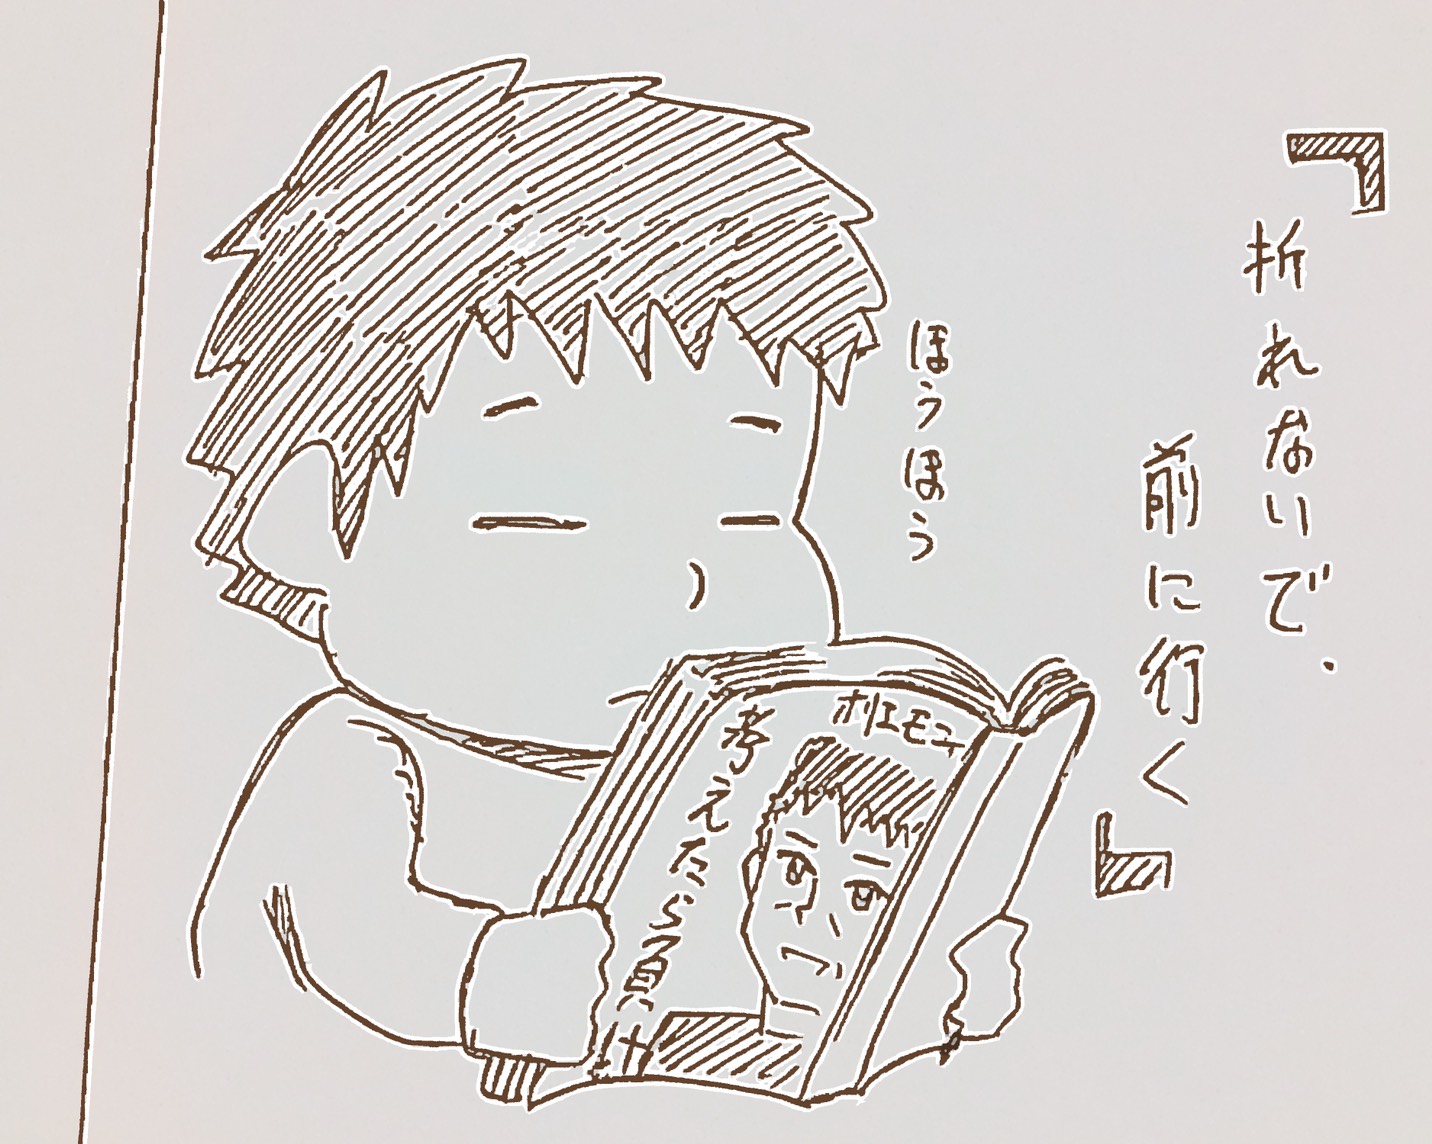 『折れないで、
前に行く』
ほうほう
ホリエモン
考えたら負